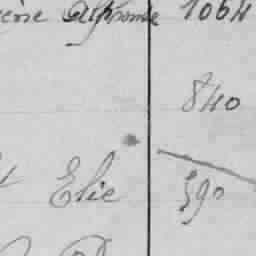 Alphonse 1064
840
Elie 590